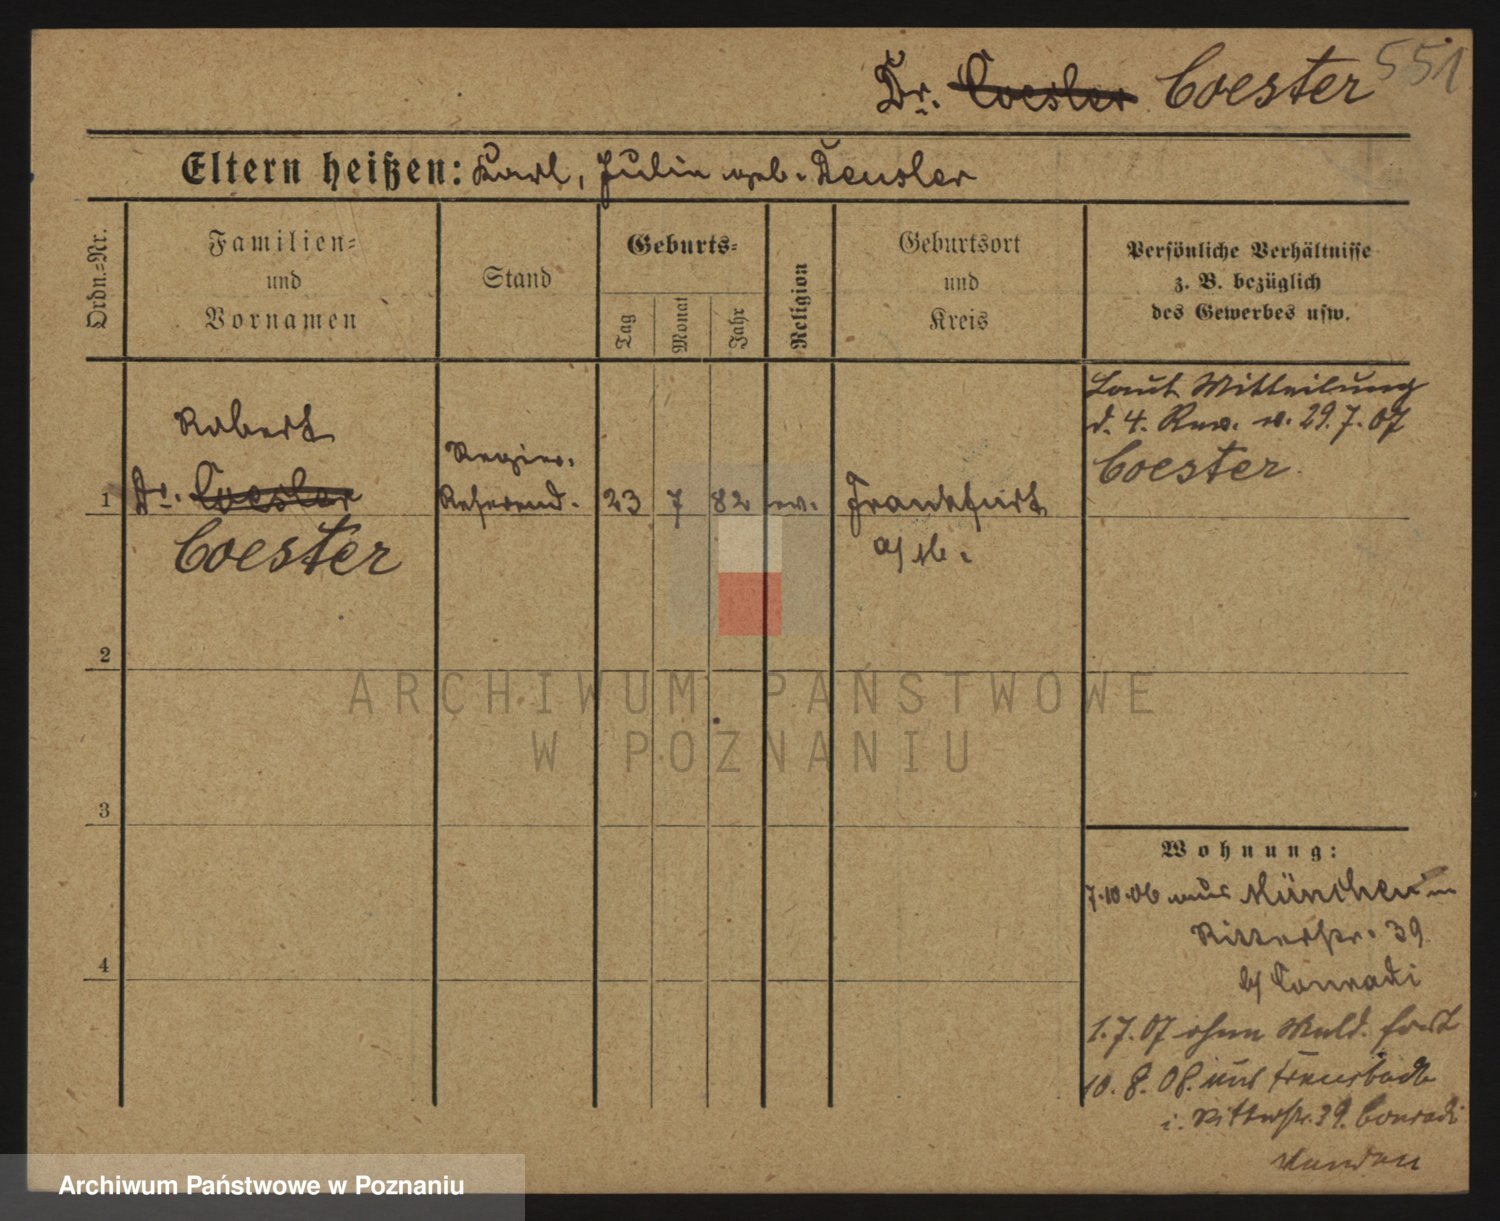 Dr. Coesler Coester 551
Eltern heißen: Karl, Julie geb. Deusler
Ordn.-Nr.
Familien-
und
Vornamen
Stand
Geburts-
Tag
Monat
Jahr
Religion
Geburtsort
und
Kreis
Persönliche Verhältnisse
z. B. bezüglich
des Gewerbes usw.
Laut Mitteilung
d. 4. Rev. v. 29.7.07
Coester.
Robert
Regier.
1 Dr. Coesler Referend. 23 7 82 ev. Frankfurt
Coester
a/M.
2
3
4
Wohnung:
7.10.06 aus München in
Ritterstr. 39
b/ Conradi
1.7.07 ohne Meld. fort
10.8.08. aus
i. Ritterstr. 39. Conradi
ARCHIWUM PAŃSTWOWE
W POZNANIU
Archiwum Państwowe w Poznaniu